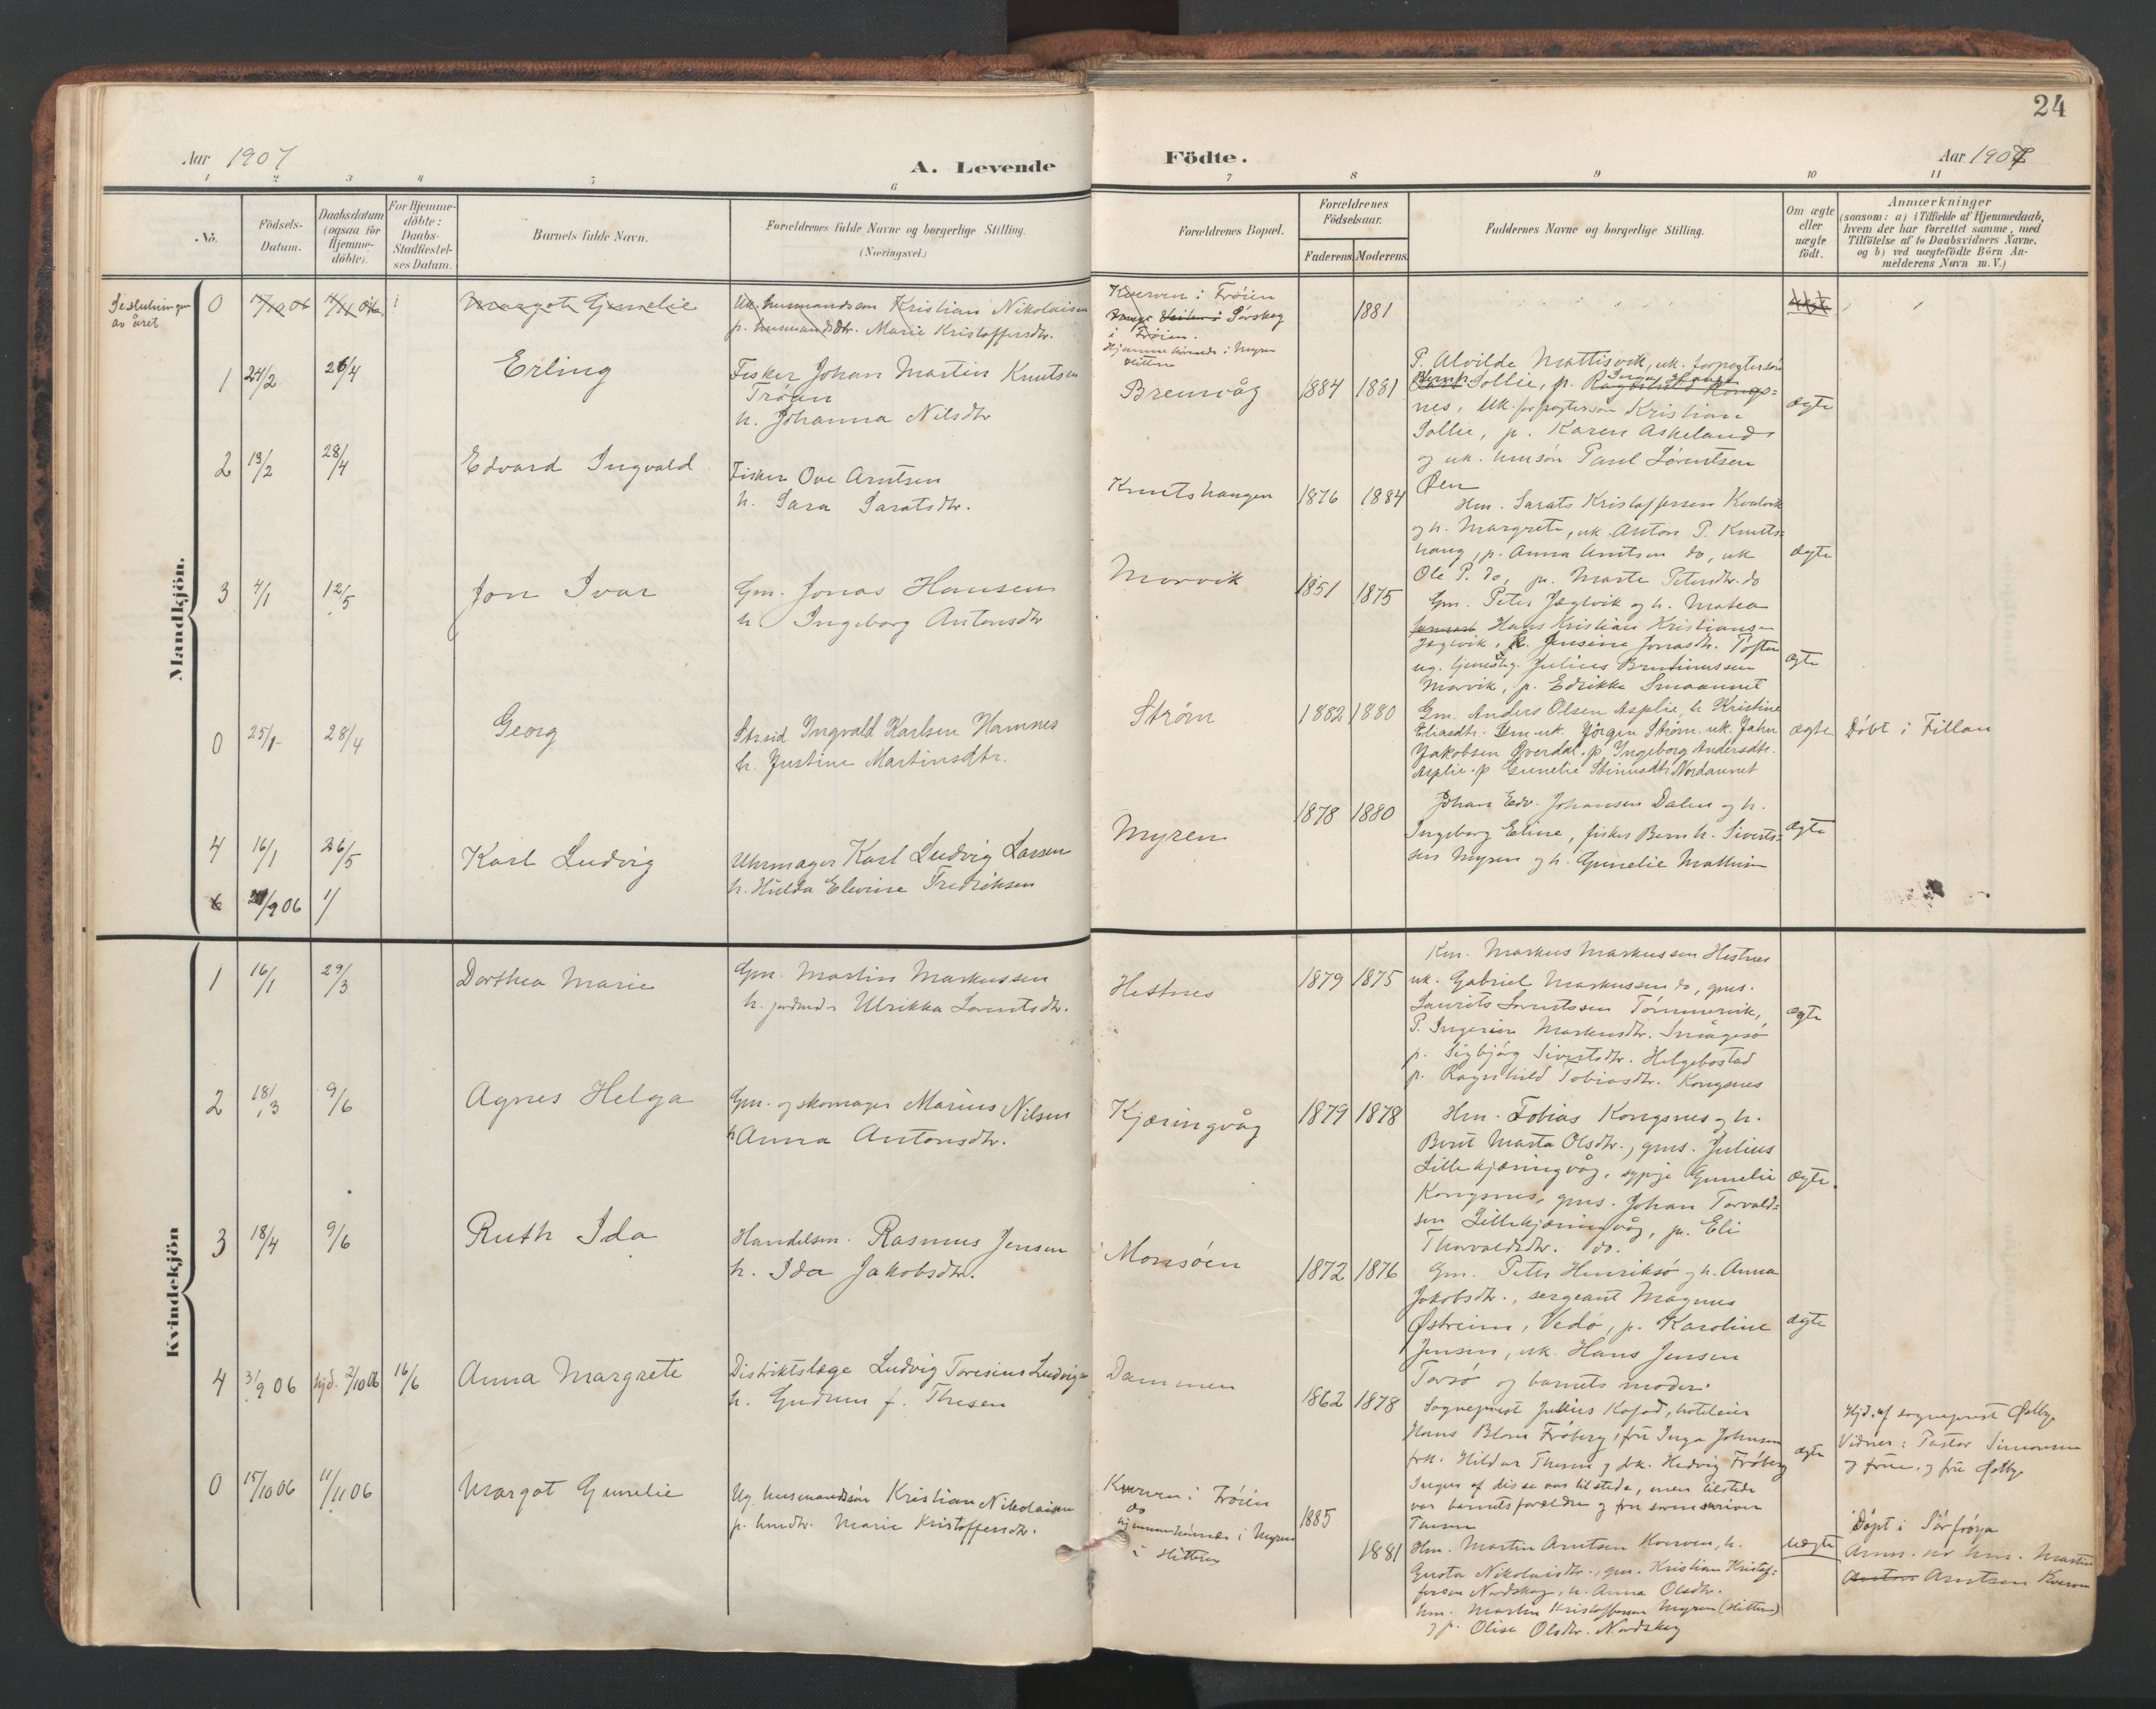 24
Aar 1907
A. Levende
Födte.
Aar 1907
1 2 3 4 5 6 7 8 9 10 11
No.
Födsels-Datum.
Daabsdatum (ogsaa for Hjemme-döbte).
For Hjemme-döbte: Daabs-Stadfæstel-ses Datum.
Barnets fulde Navn.
Forældrenes fulde Navne og borgerlige Stilling.
(Næringsvei.)
Forældrenes Bopæl.
Forældrenes Födselsaar.
Faderens Moderens
Faddernes Navne og borgerlige Stilling.
Om ægte eller uægte födt.
Anmærkninger
(saasom: a) i Tilfælde af Hjemmedaab,
hvem der har forrettet samme, med
Tilföielse af to Daabsvidners Navne.
og b) ved uægtefödte Börn An-
melderens Navn m. V.)
Se slutningen
av året
Mandkjön.
0 Margot Gunelie
Uk. husmandssøn Kristian Nikolaisen
p. husmandsdtr. Marie Kristoffersdtr.
Kverven i Frøien
Sørskag
i Frøien.
Hjemmehørende i Myren
Hitteren
1881
1 24/2 26/4 Erling
Fisker Johan Martin Knutsen
Trøan
h. Johanna Nilsdtr
Bremvåg 1884 1881
P. Alvilde Mattisvik, uk. forpagtersøn
Sollie, p.
nes, uk. forpagtersøn Kristian
Sollie, p. Karen Askeland
og uk. Paul Lorentsen
Øen
ægte
2 13/2 28/4 Edvard Ingvald
Fisker Ove Arntsen
h. Sara Saratsdtr.
Knutshaugen 1876 1884
Hm. Sarats Kristoffersen Kvalvik
og h. Margrete, uk. Anton P. Knuts-
haug, p. Anna Arntsen do, uk
Ole P. do, p. Marte Petersdtr. do
ægte
3 4/1 12/5 Jon Ivar
Gm. Jonas Hansen
h Ingeborg Antonsdtr
Morvik 1851 1875
Gm. Peter Jægtvik og h. Matea
Hans Kristian Kristiansen
Jægtvik, p. Jensine Jonasdtr. Toften
Julius
Morvik, p. Edrikke Smaaunet
ægte
0 25/1 28/4 Georg
Strsid Ingvald Karlsen Hamnes
h. Justine Martinsdtr.
Strøm 1882 1880
Gm. Anders Olsen Asplie, h Kristine
Eliasdtr. Gm. uk. Jørgen Strøm. uk. Johan
Jakobsen Overdal. p. Ingeborg Andersdtr.
Asplie. p Gunelie Nordaunet
ægte Døbt i Fillan
4 16/1 26/5 Karl Ludvig
Uhrmager Karl Ludvig Larsen
h. Hilda Elevine Fredriksen
Myren 1878 1880
Johan Edv. Johansen Dalen og h.
Ingeborg Eline, fisker Bernh. Siverts-
sen Myren og h. Gunelie
ægte
6 21/9 06
Kvindekjön
1 16/1 29/3 Dorthea Marie
Gm. Martin Markussen
h. jordmoder Ulrikka Lorentsdtr.
Hestnes 1879 1875
Km. Markus Markussen Hestnes
uk. Gabriel Markussen do, gms.
Laurits Lorentssen Tømmervik,
P. Ingerine Markusdtr. Småges­ø
p. Sigbjørg Sivertsdtr. Helgebostad
p. Ragnhild Tobiasdtr. Kongsnes
ægte
2 18/3 9/6 Agnes Helga
Gm. og skomager Marius Nilsen
h Anna Antonsdtr.
Kjæringvåg 1879 1878
Hm. Tobias Kongsnes og h.
Berit Marta Olsdtr., gms. Julius
Lillekjæringvåg, sypige Gunelie
Kongsnes, gms. Johan Torvald-
sen Lillekjæringvåg, p. Eli
Thorvaldsdtr. do.
ægte.
3 18/4 9/6 Ruth Ida
Handelsm. Rasmus Jensen
h. Ida Jakobsdtr.
Monsøen 1872 1876
Gm. Peter Henriksø og h. Anna
Jakobsdtr., sergeant Magnus
Østreim, Vedø, p. Karoline
Jensen, uk. Hans Jensen
Torsø og barnets moder.
ægte
4 3/9 06 hjd. 2/10 06 16/6 Anna Margrete
Distriktslæge Ludvig Toresius Ludvigsen
h. Gudrun f. Thesen
Dammen 1862 1878
Sogneprest Julius Kofod, hoteleier
Hans Blom Frøberg, fru Inga Johnsen
frk. Hildur Thesen og frk. Hedvig Frøberg
Ingen af disse var tilstede, men tilstede
var barnets forældre og fru sorenskriver
Thesen
ægte
Hjd. af sogneprest Østbye
Vidner: Pastor Simonsen
og frue. og fru Østbye
0 15/10 06 11/11 06 Margot Gunelie
Ug. husmandssøn Kristian Nikolaisen
p. hmdtr. Marie Kristoffersdtr.
Kverven i Frøien
do
hjemmehørende i Myren
i Hitteren
1885
1881
Hm. Martin Arntsen Kverven, h.
Gusta Nikolaisdtr., gm. Kristian Kristof-
fersen Nordskag, h. Anna Olsdtr.
hm. Martin Kristoffersen Myren (Hitteren)
og p. Olise Olsdtr. Nordskag
Uægte
Døpt i Sørfrøya
Anm. av hm. Martin
Arntsen Kverven